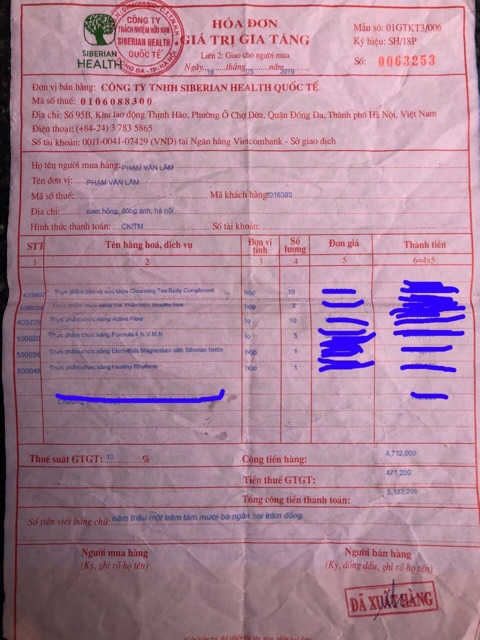 CÔNG TY
TRÁCH NHIỆM HỮU HẠN
SIBERIAN HEALTH
QUỐC TẾ
SIBERIAN
HEALTH
HÓA ĐƠN
GIÁ TRỊ GIA TĂNG
Liên 2: Giao cho người mua
Ngày tháng năm 2019
Mẫu số: 01GTKT3/006
Ký hiệu: SH/18P
Số: 0063253
Đơn vị bán hàng: CÔNG TY TNHH SIBERIAN HEALTH QUỐC TẾ
Mã số thuế: 0106088300
Địa chỉ: Số 95B, Khu lao động Thịnh Hào, Phường Ô Chợ Dừa, Quận Đống Đa, Thành phố Hà Nội, Việt Nam
Điện thoại: (+84-24) 3 783 5865
Số tài khoản: 0011-0041-07429 (VND) tại Ngân hàng Vietcombank - Sở giao dịch
Họ tên người mua hàng: PHẠM VĂN LÂM
Tên đơn vị: PHẠM VĂN LÂM
Mã số thuế: Mã khách hàng: 2016393
Địa chỉ: nam hồng, đông anh, hà nội
Hình thức thanh toán: CK/TM Số tài khoản:
STT Tên hàng hoá, dịch vụ Đơn vị tính Số lượng Đơn giá Thành tiền
1 2 3 4 5 6=4x5
Thực phẩm bảo vệ sức khỏe Cleansing Tea Body Compliment hộp 10
hộp 2
403725 Thực phẩm chức năng Active Fiber lọ 10
500020 Thực phẩm chức năng Formula 4 N.V.M.N lọ 3
500036 Thực phẩm chức năng Elemvitals Magnesium with Siberian herbs hộp 1
500048 Thực phẩm chức năng Healthy Rhythms hộp 1
Thuế suất GTGT: 10 % Cộng tiền hàng: 4,712,000
Tiền thuế GTGT: 471,200
Tổng cộng tiền thanh toán: 5,183,200
Số tiền viết bằng chữ: năm triệu một trăm tám mươi ba ngàn hai trăm đồng
Người mua hàng Người bán hàng
(Ký, ghi rõ họ tên) (Ký, đóng dấu, ghi rõ họ tên)
ĐÃ XUẤT HÀNG